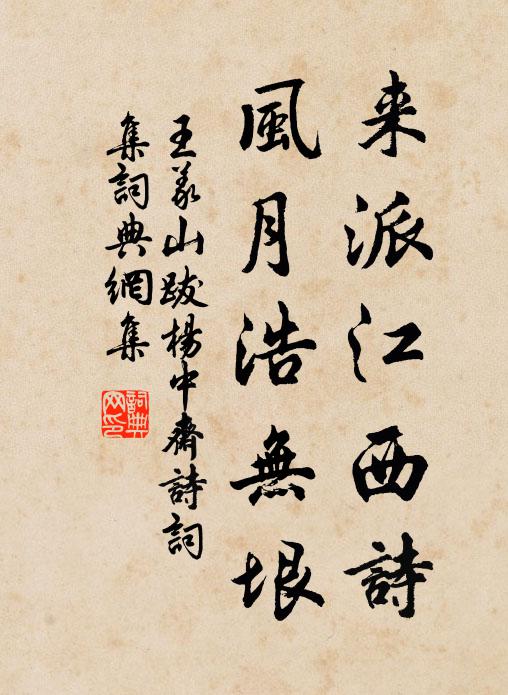 来派江西詩
風月浩無垠
王义山跋楊中齋詩詞
集詞典網集
詞典
网印